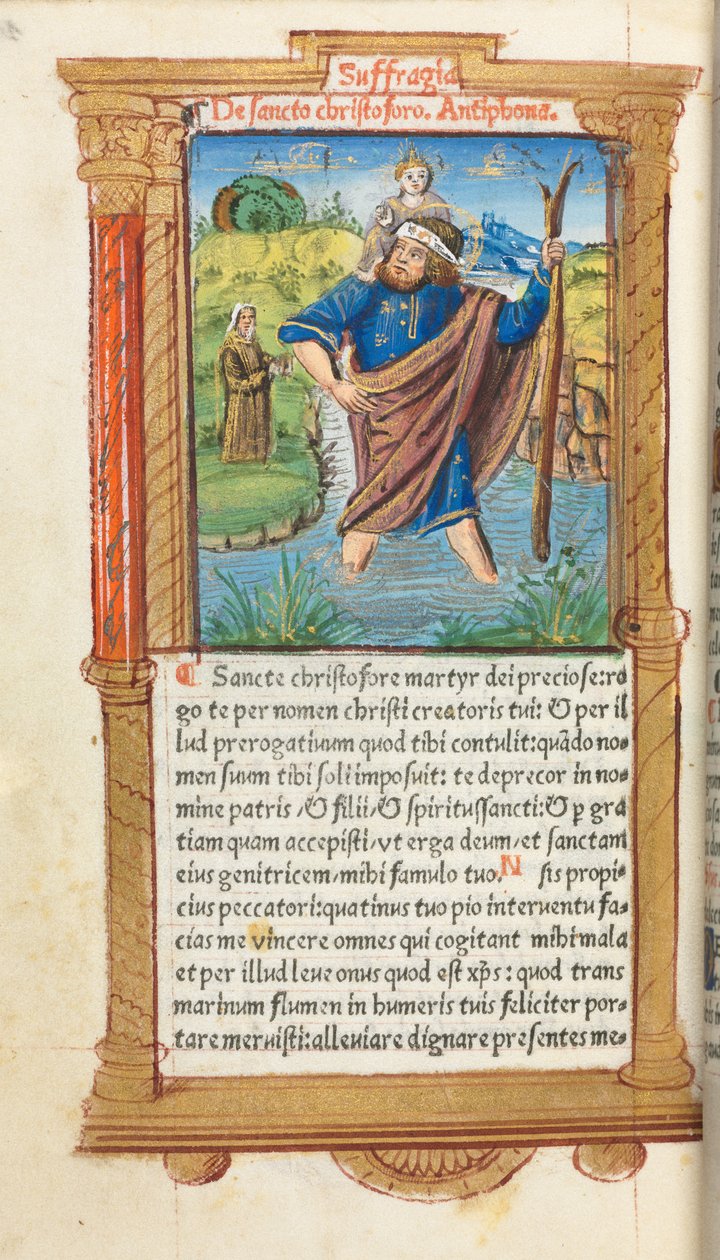 Suffragia
De sancto christoforo. Antiphona.
¶ Sancte christofore martyr dei preciose:ro
go te per nomen christi creatoris tui: & per il
lud prerogatiuum quod tibi contulit:quãdo no-
men suum tibi soli imposuit: te deprecor in no-
mine patris / & filii / & spiritussancti: & ꝑ gra
tiam quam accepisti/vt erga deum/et sanctam
eius genitricem/mihi famulo tuo. N sis propi-
cius peccatori:quatinus tuo pio interuentu fa-
cias me vincere omnes qui cogitant mihi mala
et per illud leue onus quod est xp̃s : quod trans
marinum flumen in humeris tuis feliciter por-
tare meruisti:alleuiare dignare presentes me-